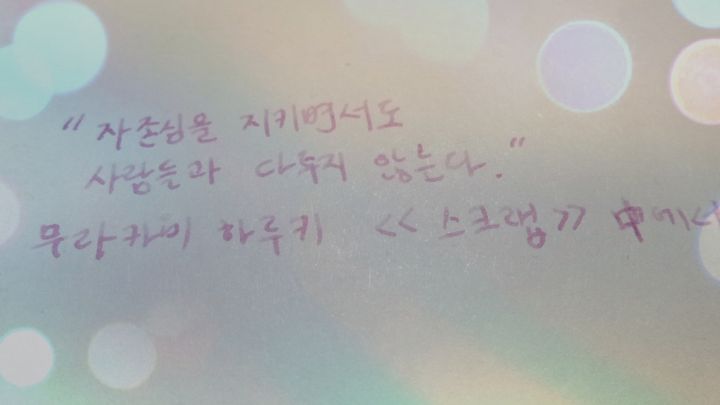 "자존심을 지키면서도
사람들과 다투지 않는다."
무라카미 하루키 << 스크랩 >> 中에서